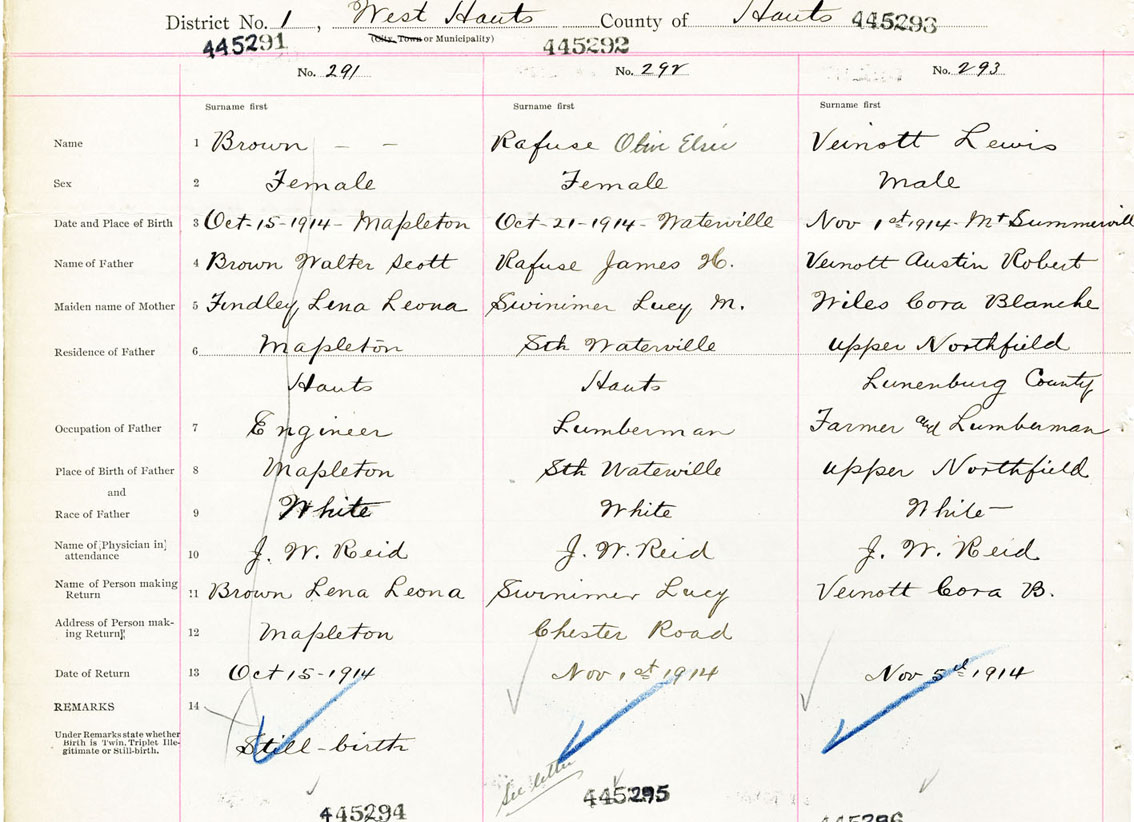 District No. 1, West Hants County of Hants
(City, Town or Municipality)
445291 445292 445293
No. 291 No. 292 No. 293
Surname first Surname first Surname first
Name 1 Brown – – Rafuse Olive Elsie Veinott Lewis
Sex 2 Female Female Male
Date and Place of Birth 3 Oct-15-1914- Mapleton Oct-21-1914- Waterville Nov 1st 1914- Mt Summervill
Name of Father 4 Brown Walter Scott Rafuse James H. Veinott Austin Robert
Maiden name of Mother 5 Findley Lena Leona Swinimer Lucy M. Wiles Cora Blanche
Residence of Father 6 Mapleton Sth Waterville Upper Northfield
Hants Hants Lunenburg County
Occupation of Father 7 Engineer Lumberman Farmer and Lumberman
Place of Birth of Father 8 Mapleton Sth Waterville Upper Northfield
and
Race of Father 9 White White White
Name of Physician in
attendance 10 J. W. Reid J. W. Reid J. W. Reid
Name of Person making
Return 11 Brown Lena Leona Swinimer Lucy Veinott Cora B.
Address of Person mak-
ing Return 12 Mapleton Chester Road
Date of Return 13 Oct 15-1914 Nov 1st 1914 Nov 5th 1914
REMARKS 14
Under Remarks state whether
Birth is Twin, Triplet Ille-
gitimate or Still-birth.
Still-birth
See letter
445294 445295 445296